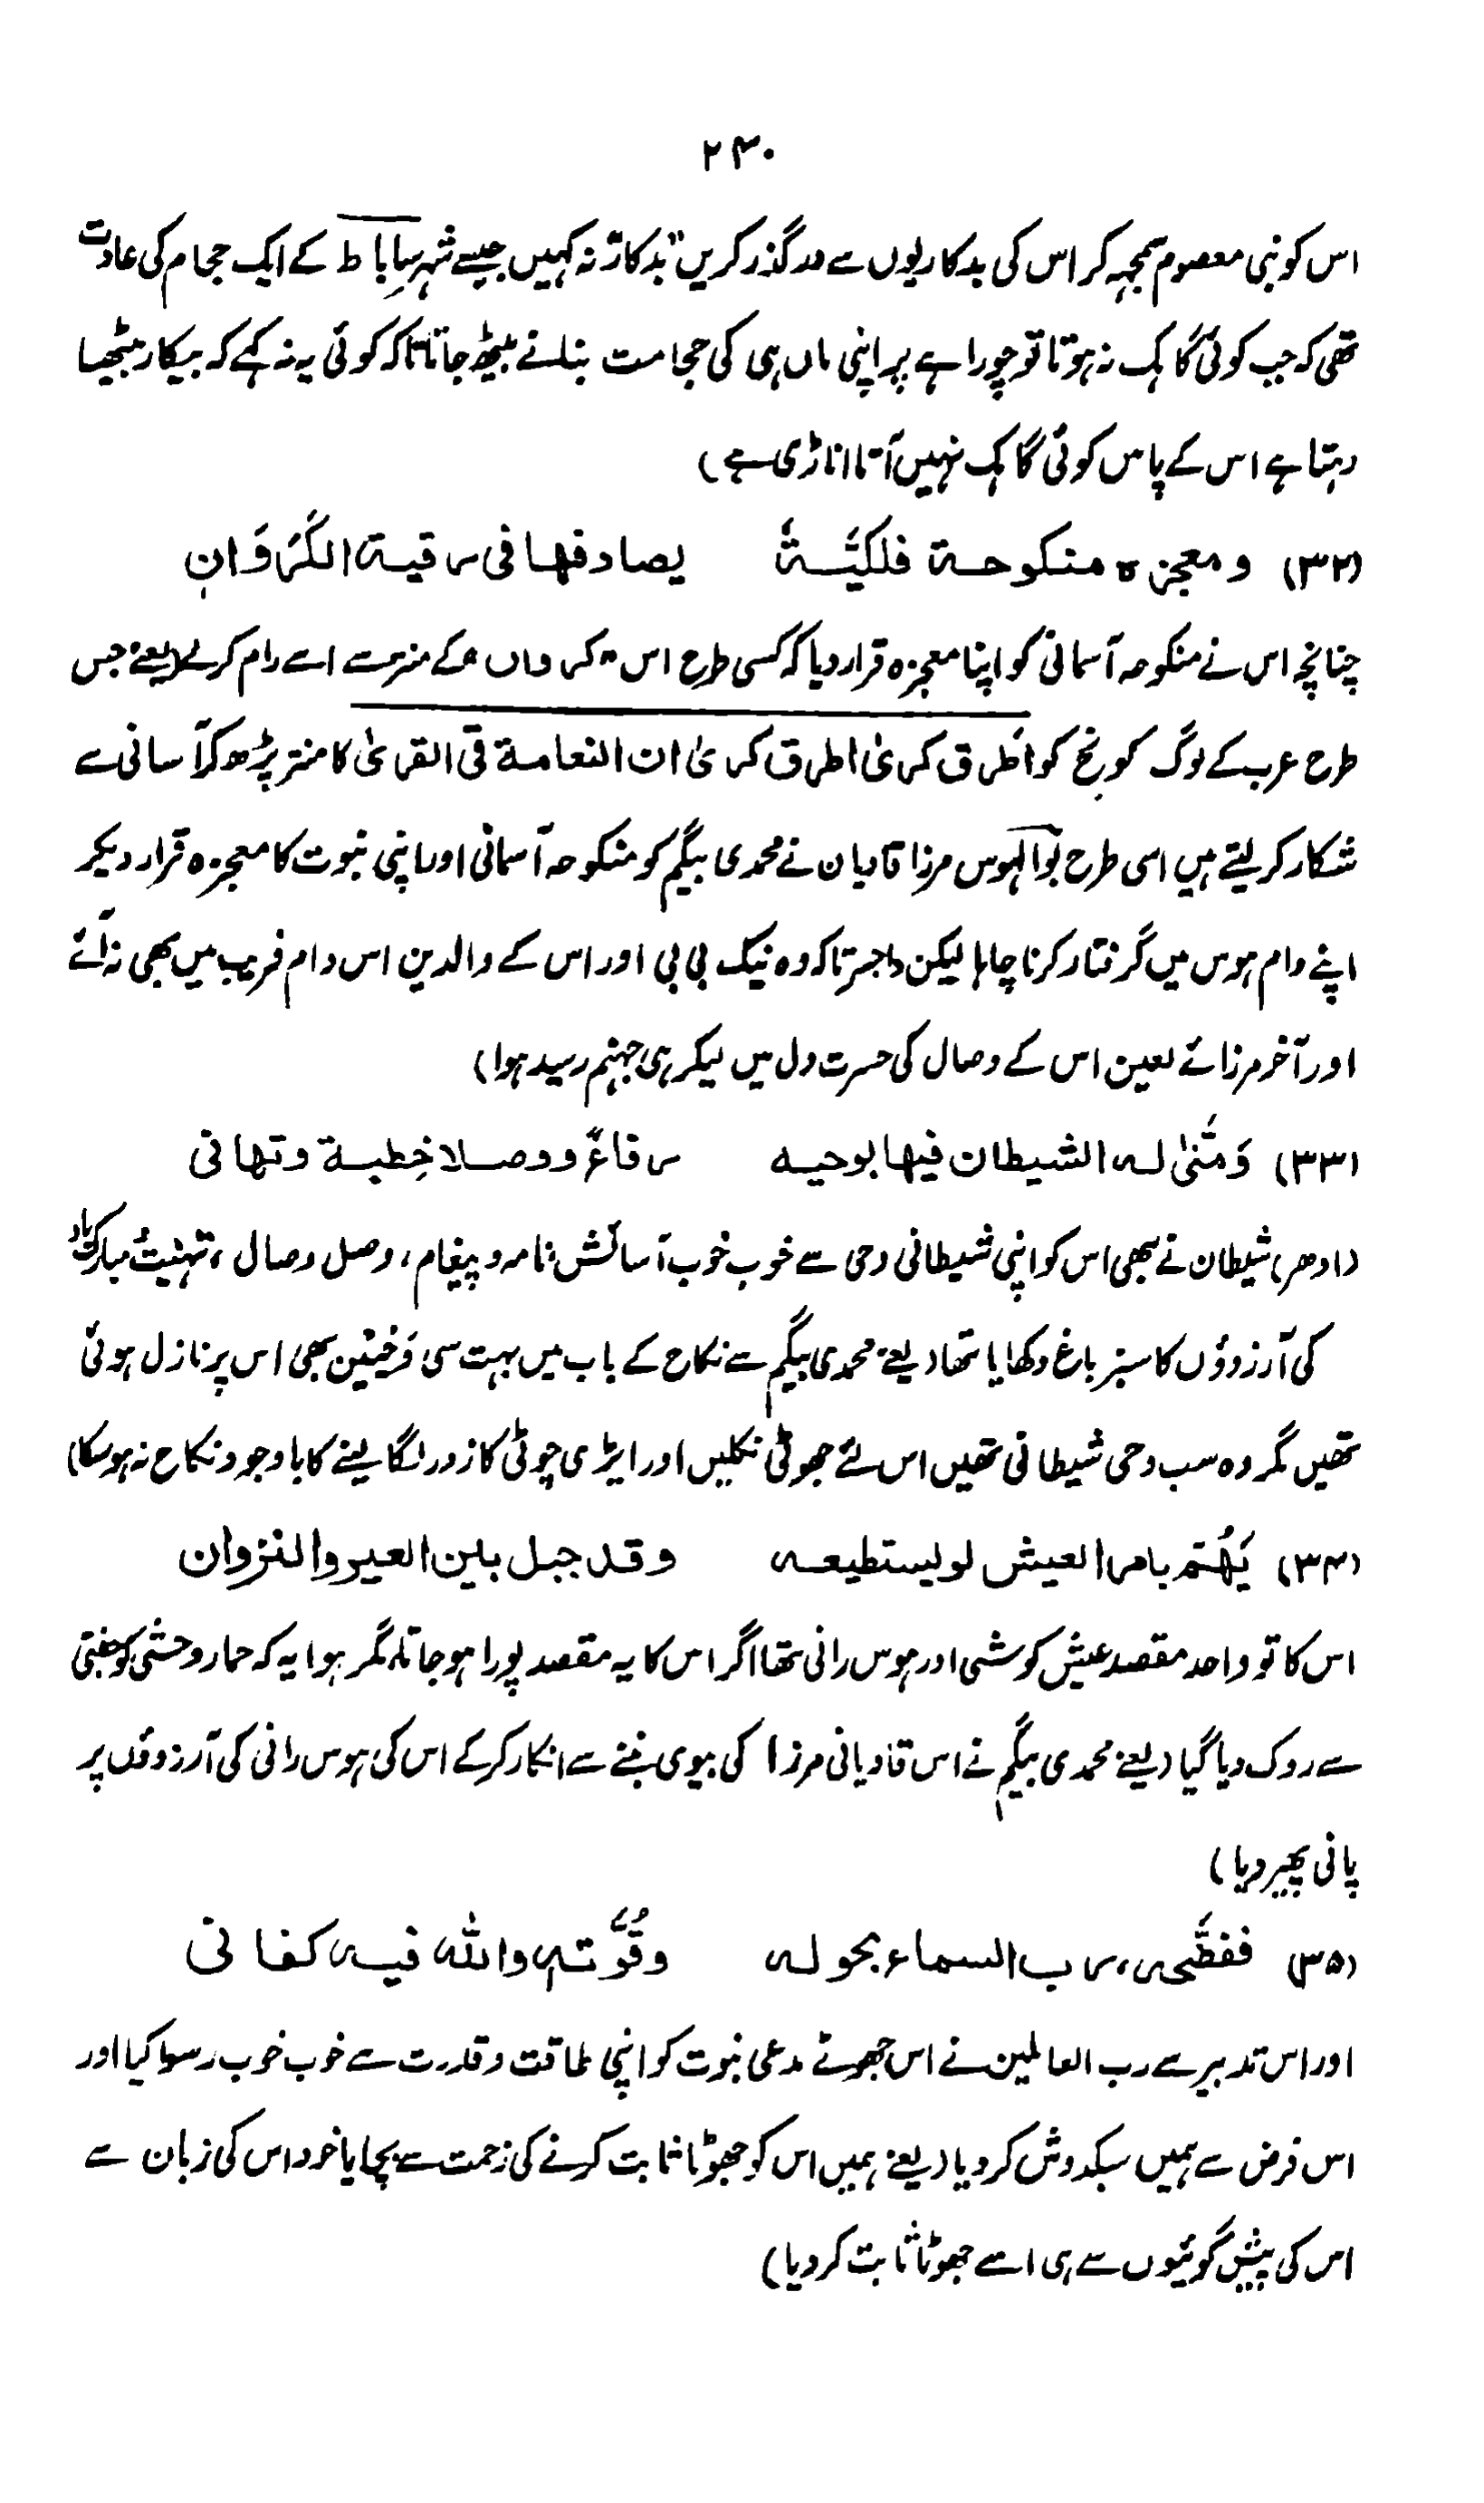 ۲۳۰
اس کو نبی معصوم سمجہہ کر اس کی بدکاریوں سے درگذر کریں "بدکار" نہ کہیں جیسے شہر ساباط کے ایک حجام کی عادت
تھی کہ جب کوئی گاہک نہ ہوتا تو چوراہے پر اپنی ماں ہی کی حجامت بنانے بیٹھ جاتا تاکہ کوئی یہ نہ کہے کہ بیکار بیٹھا
رہتا ہے اس کے پاس کوئی گاہک نہیں آتا اناڑی ہے)
(۳۲) ومعجزہ منکوحة فلكيَّةً يصادفها فى رقية الكَرَوَانِ
چنانچہ اس نے منکوحہ آسمانی کو اپنا معجزہ قرار دیا کہ کسی طرح اس "کروان" کے منتر سے اسے رام کرلے (یعنے جس
طرح عرب کے لوگ کو نج کو اَطرق کریٰ اطرق کریٰ ان النعامة فی القریٰ کا منتر پڑھ کر آسانی سے
شکار کر لیتے ہیں اسی طرح بوالہوس مرزا قادیان نے محمدی بیگم کو منکوحہ آسمانی اور اپنی نبوت کا معجزہ قرار دیکر
اپنے دام ہوس میں گرفتار کرنا چاہا لیکن واحسرتا کہ وہ نیک بی بی اور اس کے والدین اس دام فریب میں بھی نہ آئے
اور آخر مرزائے لعین اس کے وصال کی حسرت دل میں لیکر ہی جہنم رسید ہوا)
(۳۳) وَمَنّىٰ له الشيطان فيها بوحيه رفاءً ووصلا خِطبة وتهانى
(ادھر) شیطان نے بھی اس کو اپنی شیطانی وحی سے خوب خوب آسائش نامہ و پیغام، وصل وصال، تہنیت مبارکباد
کی آرزوؤں کا سبز باغ دکھایا تھا (یعنے محمدی بیگم سے نکاح کے باب میں بہت سی وحیئیں بھی اس پر نازل ہوئی
تھیں مگر وہ سب وحی شیطانی تھیں اس لئے جھوٹی نکلیں اور ایڑی چوٹی کا زور لگا لینے کا باوجود نکاح نہ ہو سکا)
(۳۴) يَهُتم بامر العيش لو يستطيعه وقد حيل بين العير والنزوان
اس کا تو واحد مقصد عیش کوشی اور ہوس رانی تھا اگر اس کا یہ مقصد پورا ہو جاتا، مگر ہوا یہ کہ حمار وحشی کو جفتی
سے روک دیا گیا (یعنے محمدی بیگم نے اس قادیانی مرزا کی بیوی بننے سے انکار کر کے اس کی ہوس رانی کی آرزوؤں پر
پانی پھیر دیا)
(۳۵) ففضّحه رب السماء بحوله وقُوَّته والله فيه كفانى
اور اس تدبیر سے رب العالمین نے اس جھوٹے مدعی نبوت کو اپنی طاقت و قدرت سے خوب خوب رسوا کیا اور
اس فرض سے ہمیں سبکدوش کر دیا (یعنے ہمیں اس کو جھوٹا ثابت کرنے کی زحمت سے بچا یا خود اس کی زبان سے
اس کی پیش گوئیوں سے ہی اسے جھوٹا ثابت کر دیا)